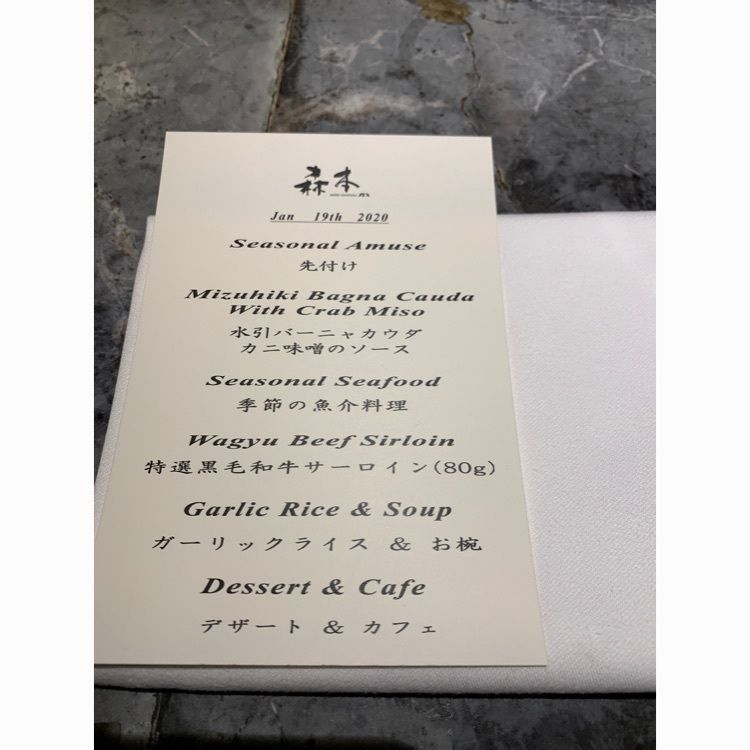 森本
Jan 19th 2020
Seasonal Amuse
先付け
Mizuhiki Bagna Cauda
With Crab Miso
水引バーニャカウダ
カニ味噌のソース
Seasonal Seafood
季節の魚介料理
Wagyu Beef Sirloin
特選黒毛和牛サーロイン(80g)
Garlic Rice & Soup
ガーリックライス & お椀
Dessert & Cafe
デザート & カフェ